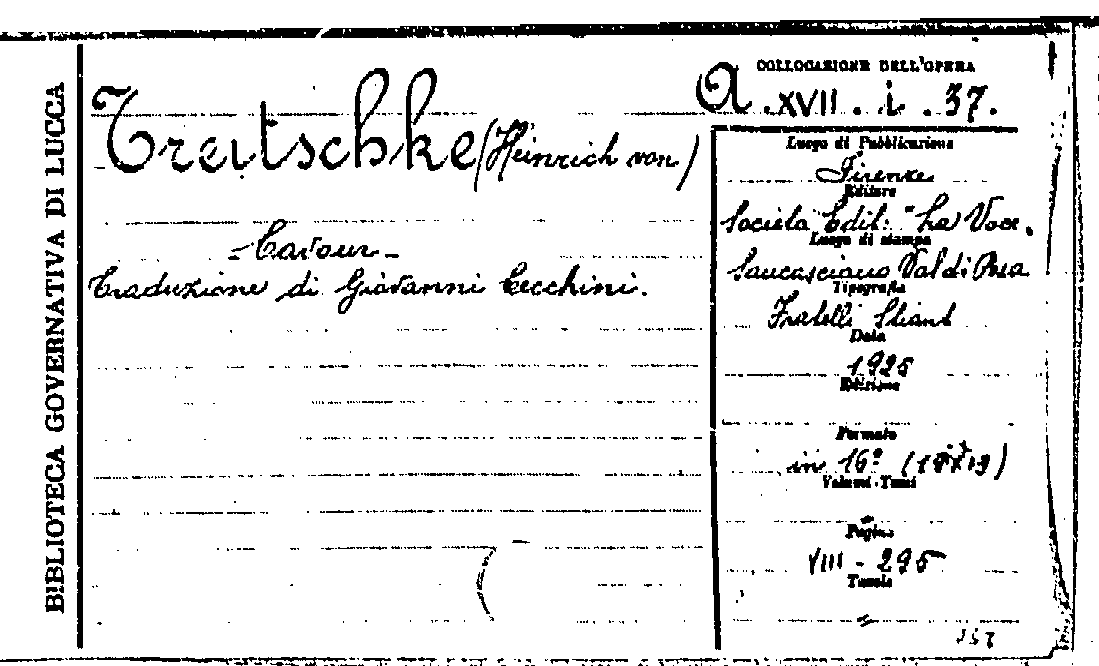 BIBLIOTECA GOVERNATIVA DI LUCCA
Treitschke (Heinrich von)
- Cavour -
Traduzione di Giovanni Cecchini.
COLLOCAZIONE DELL'OPERA
A . XVII . i . 37.
Luogo di Pubblicazione
Firenze
Editore
Società Edit: "La Voce.
Luogo di stampa
Sancasciano Val di Pesa
Tipografia
Fratelli Stianti
Data
1925
Edizione
Formato
in 16º
Volumi - Tomi
Pagine
VIII - 295
Tavole